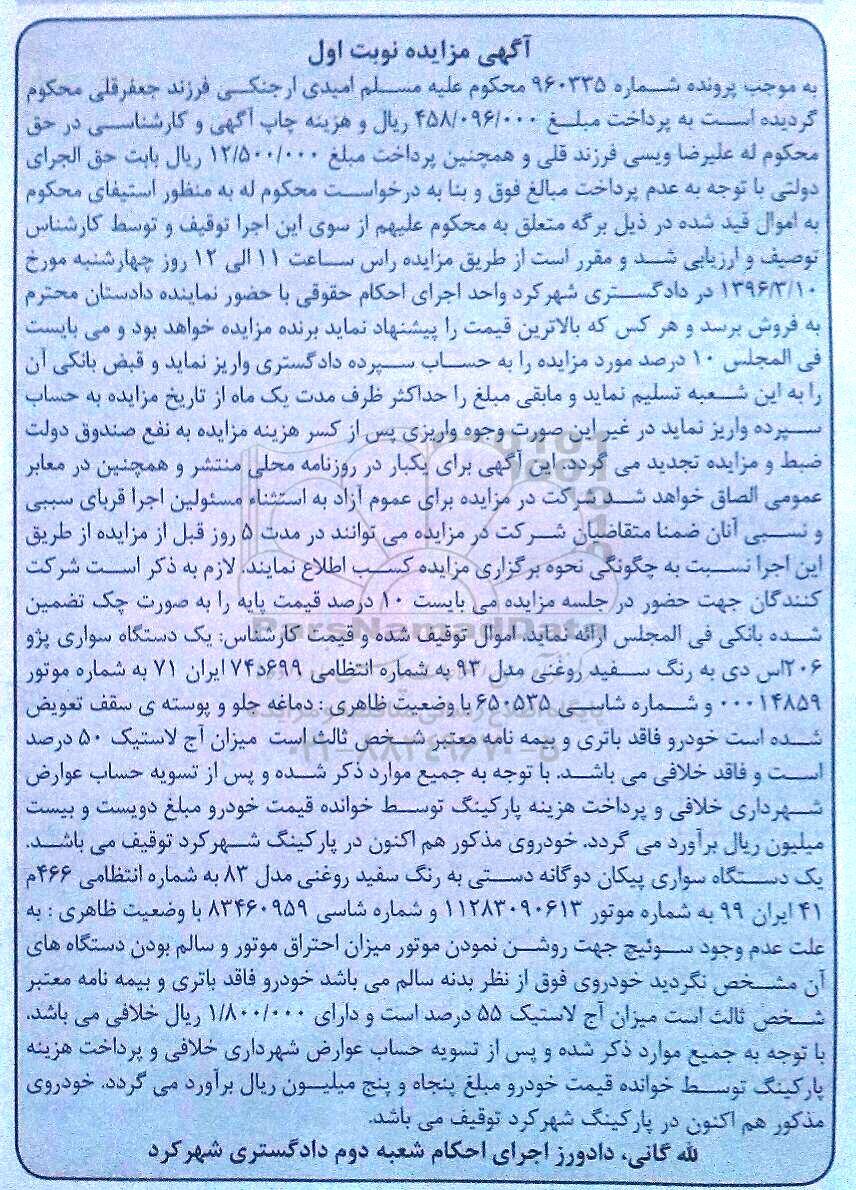 آگهی مزایده نوبت اول
به موجب پرونده شماره ۹۶۰۳۳۵ محکوم علیه مسلم امیدی ارجنکی فرزند جعفرقلی محکوم
گردیده است به پرداخت مبلغ ۴۵۸/۰۹۶/۰۰۰ ریال و هزینه چاپ آگهی و کارشناسی در حق
محکوم له علیرضا ویسی فرزند قلی و همچنین پرداخت مبلغ ۱۲/۵۰۰/۰۰۰ ریال بابت حق الجرای
دولتی با توجه به عدم پرداخت مبالغ فوق و بنا به درخواست محکوم له به منظور استیفای محکوم
به اموال قید شده در ذیل برگه متعلق به محکوم علیهم از سوی این اجرا توقیف و توسط کارشناس
توصیف و ارزیابی شد و مقرر است از طریق مزایده راس ساعت ۱۱ الی ۱۲ روز چهارشنبه مورخ
۱۳۹۶/۳/۱۰ در دادگستری شهرکرد واحد اجرای احکام حقوقی با حضور نماینده دادستان محترم
به فروش برسد و هر کس که بالاترین قیمت را پیشنهاد نماید برنده مزایده خواهد بود و می بایست
فی المجلس ۱۰ درصد مورد مزایده را به حساب سپرده دادگستری واریز نماید و قبض بانکی آن
را به این شعبه تسلیم نماید و مابقی مبلغ را حداکثر ظرف مدت یک ماه از تاریخ مزایده به حساب
سپرده واریز نماید در غیر این صورت وجوه واریزی پس از کسر هزینه مزایده به نفع صندوق دولت
ضبط و مزایده تجدید می گردد. این آگهی برای یکبار در روزنامه محلی منتشر و همچنین در معابر
عمومی الصاق خواهد شد شرکت در مزایده برای عموم آزاد به استثناء مسئولین اجرا قربای سببی
و نسبی آنان ضمنا متقاضیان شرکت در مزایده می توانند در مدت ۵ روز قبل از مزایده از طریق
این اجرا نسبت به چگونگی نحوه برگزاری مزایده کسب اطلاع نمایند. لازم به ذکر است شرکت
کنندگان جهت حضور در جلسه مزایده می بایست ۱۰ درصد قیمت پایه را به صورت چک تضمین
شده بانکی فی المجلس ارائه نماید. اموال توقیف شده و قیمت کارشناس: یک دستگاه سواری پژو
۲۰۶اس دی به رنگ سفید روغنی مدل ۹۳ به شماره انتظامی ۶۹۹د۷۴ ایران ۷۱ به شماره موتور
۰۰۰۱۴۸۵۹ و شماره شاسی ۶۵۰۵۳۵ با وضعیت ظاهری : دماغه جلو و پوسته ی سقف تعویض
شده است خودرو فاقد باتری و بیمه نامه معتبر شخص ثالث است میزان آج لاستیک ۵۰ درصد
است و فاقد خلافی می باشد. با توجه به جمیع موارد ذکر شده و پس از تسویه حساب عوارض
شهرداری خلافی و پرداخت هزینه پارکینگ توسط خوانده قیمت خودرو مبلغ دویست و بیست
میلیون ریال برآورد می گردد. خودروی مذکور هم اکنون در پارکینگ شهرکرد توقیف می باشد.
یک دستگاه سواری پیکان دوگانه دستی به رنگ سفید روغنی مدل ۸۳ به شماره انتظامی ۴۶۶م
۴۱ ایران ۹۹ به شماره موتور ۱۱۲۸۳۰۹۰۶۱۳ و شماره شاسی ۸۳۴۶۰۹۵۹ با وضعیت ظاهری : به
علت عدم وجود سوئیچ جهت روشن نمودن موتور میزان احتراق موتور و سالم بودن دستگاه های
آن مشخص نگردید خودروی فوق از نظر بدنه سالم می باشد خودرو فاقد باتری و بیمه نامه معتبر
شخص ثالث است میزان آج لاستیک ۵۵ درصد است و دارای ۱/۸۰۰/۰۰۰ ریال خلافی می باشد.
با توجه به جمیع موارد ذکر شده و پس از تسویه حساب عوارض شهرداری خلافی و پرداخت هزینه
پارکینگ توسط خوانده قیمت خودرو مبلغ پنجاه و پنج میلیون ریال برآورد می گردد. خودروی
مذکور هم اکنون در پارکینگ شهرکرد توقیف می باشد.
لله گانی، دادورز اجرای احکام شعبه دوم دادگستری شهرکرد
ParsNamadData